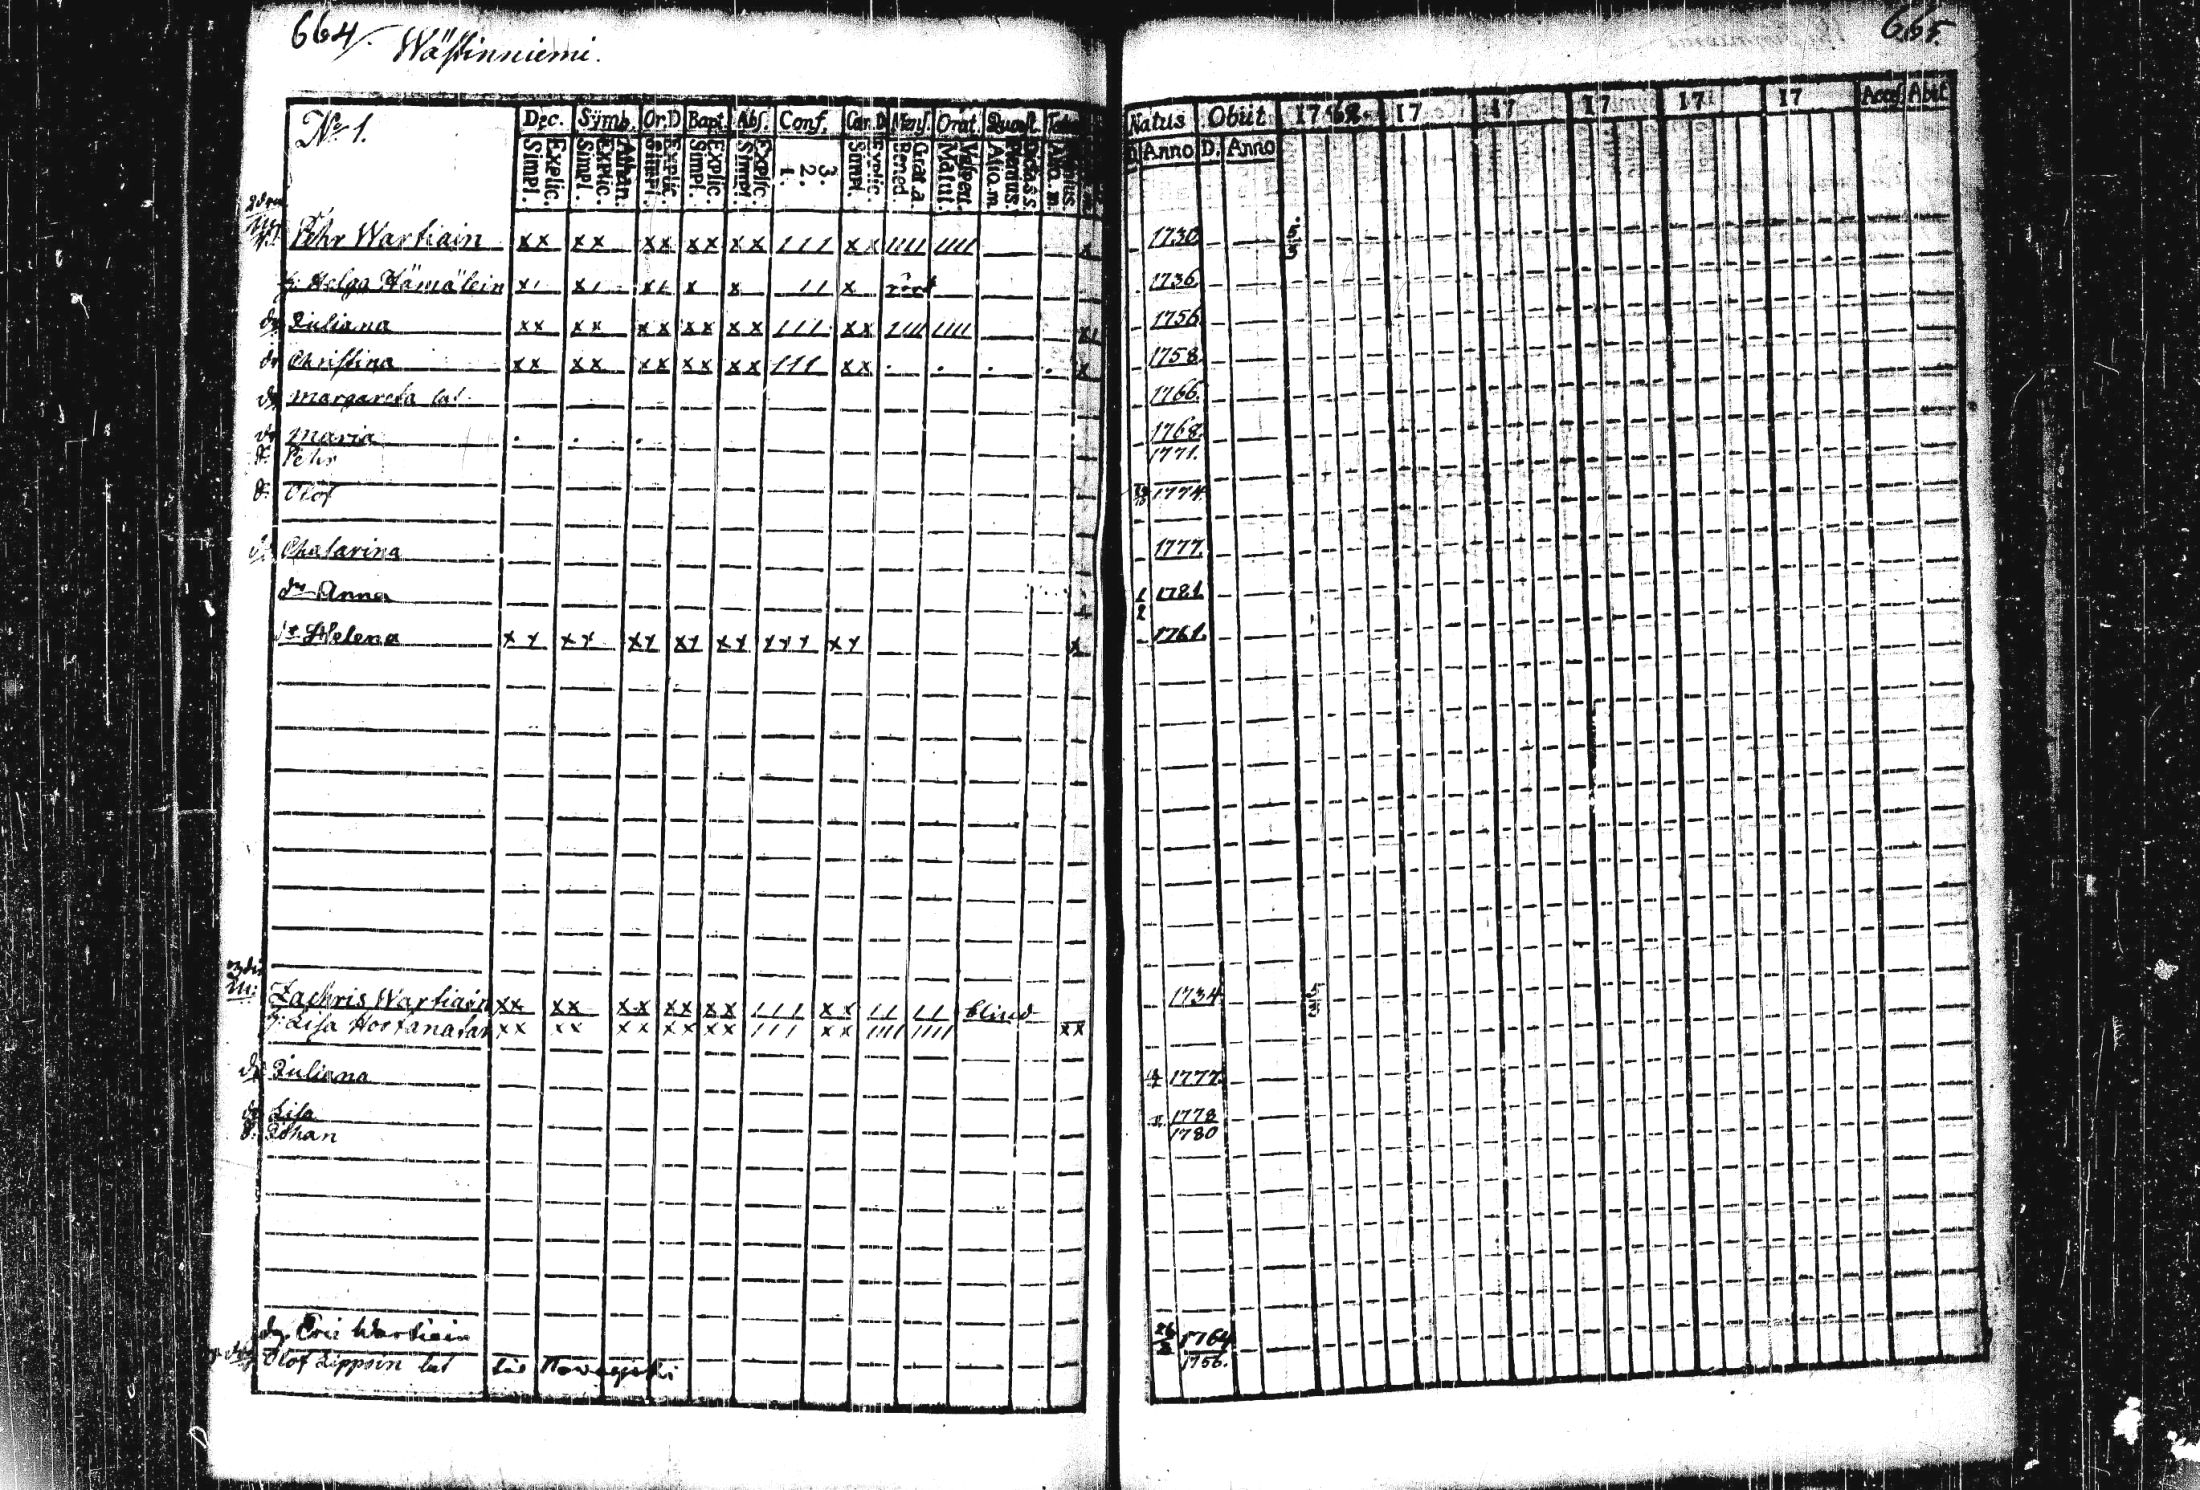 664.
Wästinniemi.
665.
No 1.
Dec. Symb. Or.D Bapt. Abs. Conf. Car. D Mens. Orat. Quæst.
Explic. Simpl.
Athan. Explic. Simpl.
Explic. Simpl.
Explic. Simpl.
Explic. Simpl.
3. 2. 1.
Explic. Simpl.
Grat. a. Bened.
Vespert. Matut.
Natus Obiit 1768. 17 17 17 17 17 Acces Abit
D. Anno D. Anno
Pehr Wartiain xx xx xx xx xx 111 xx 1111 1111 x 1730 5/3
h. Helga Hämäläin x1 x1 x1 x x 11 x 1736
dr Juliana xx xx xx xx xx 111 xx 1111 1111 x1 1756
dr Christina xx xx xx xx xx 111 xx x 1758.
dr Margareta 1766.
dr Maria 1768.
S. Pehr 1771.
S. Olof 1774.
dr Chatarina 1777.
dr Anna 1/2 1781
dr Helena xx xx xx xx xx xxx xx x 1761.
Zachris Wartiain xx xx xx xx xx 111 xx 11 11 blind 1734 5/3
h. Lisa xx xx xx xx xx 111 xx 1111 1111 xx
dr Juliana 1777.
dr Lisa 1778
S. Johan 1780
dg. Eric Wartiain 26 1764
Olof Lippoin 1756.